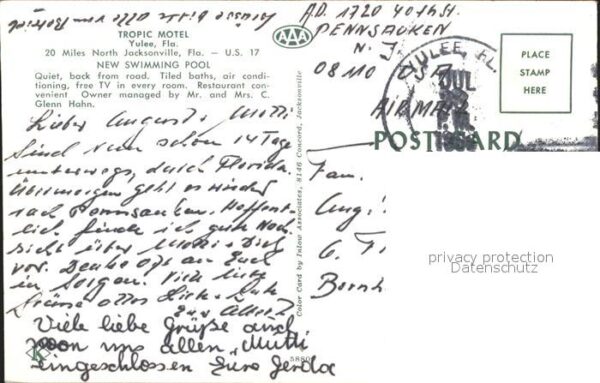 TROPIC MOTEL
Yulee, Fla.
20 Miles North Jacksonville, Fla. — U.S. 17
NEW SWIMMING POOL
Quiet, back from road. Tiled baths, air condi-
tioning, free TV in every room. Restaurant con-
venient. Owner managed by Mr. and Mrs. C.
Glenn Hahn.
Lieber August + Mutti
Sind nun schon 14 Tage
unterwegs, durch Florida.
Übermorgen geht es wieder
nach Pennsauken. Hoffent-
lich finde ich gute Nach-
richt über Mutti + Dich
vor. Denke oft an Euch
in Sorgen. Viele liebe
Grüsse
Viele liebe Grüße auch
von uns allen, Mutti
eingeschlossen Eure Gerda
K
5880
Color Card by Inlow Associates, 8146 Concord, Jacksonville
AAA
A.D. 1720 40th St.
PENNSAUKEN
N. J.
08110 USA
AIRMAIL
YULEE, FL.
JUL
PLACE
STAMP
HERE
POST CARD
Fam.
Aug.
6.
Bornh
privacy protection
Datenschutz